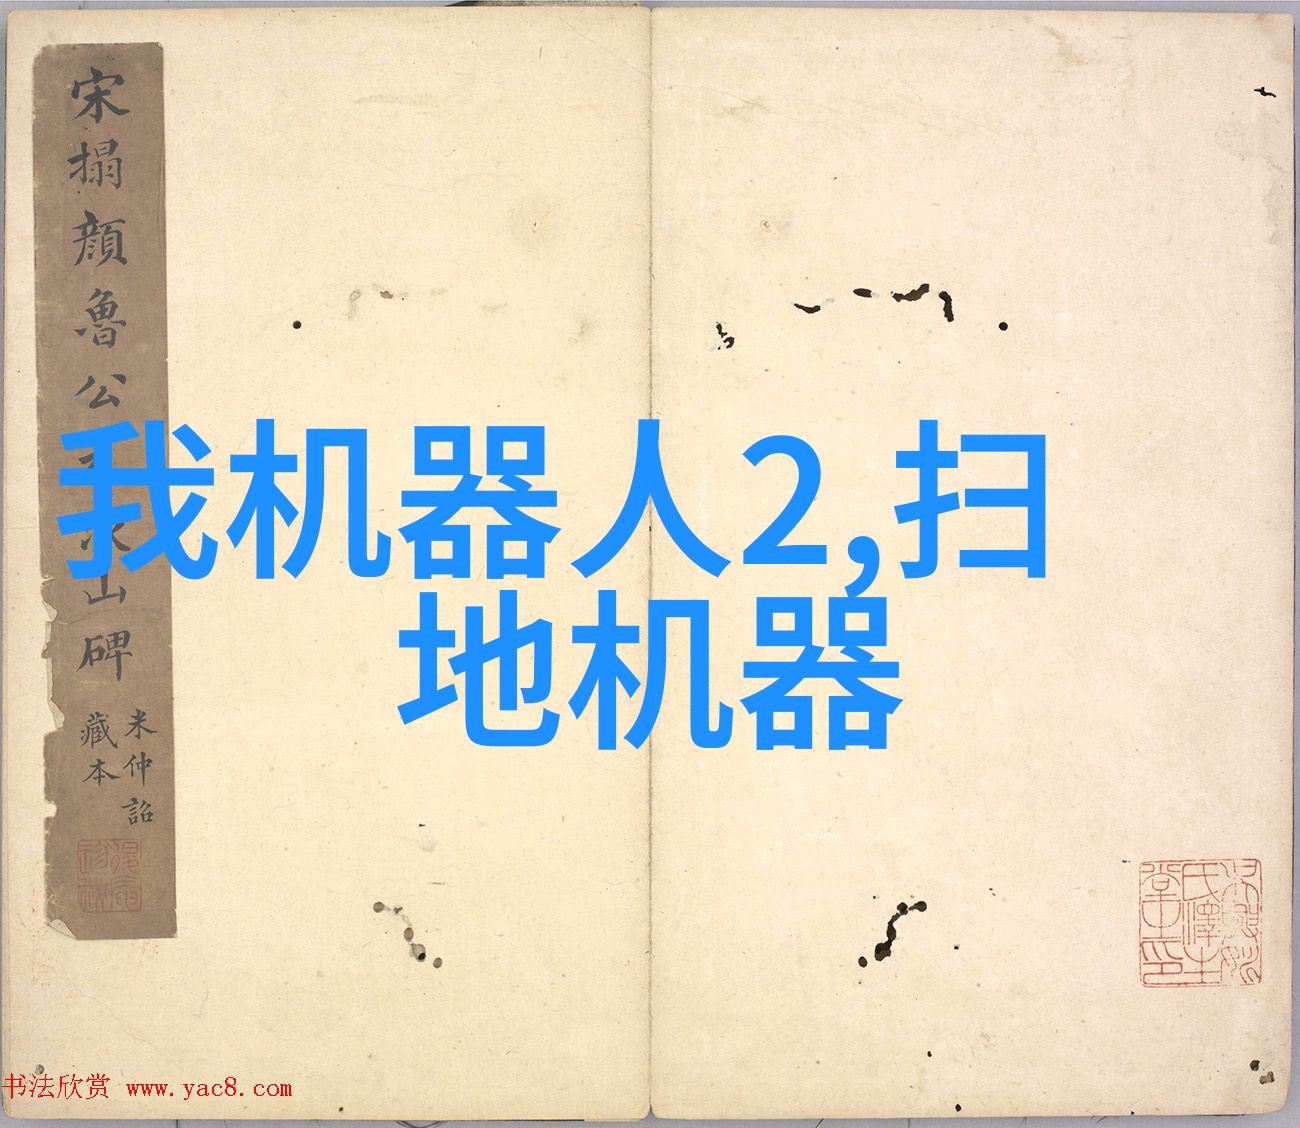 宋搨顏魯公
山碑
米仲詔
藏本
我机器人2,扫
地机器
书法欣赏 www.yac8.com